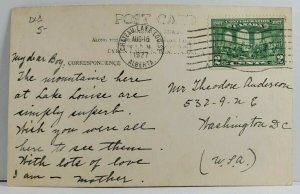 D13
5-
POST CARD
CORRESPONDENCE
CHATEAU LAKE LOUISE
AUG 16
1927
ALBERTA
CONFEDERATION
CANADA
2
2
My dear Boy,
The mountains here
at Lake Louise are
simply superb.
Wish you were all
here to see them.
With lots of love
I am - mother.
Mr Theodore Anderson
532-9-N E
Washington D C
(U.S.A)